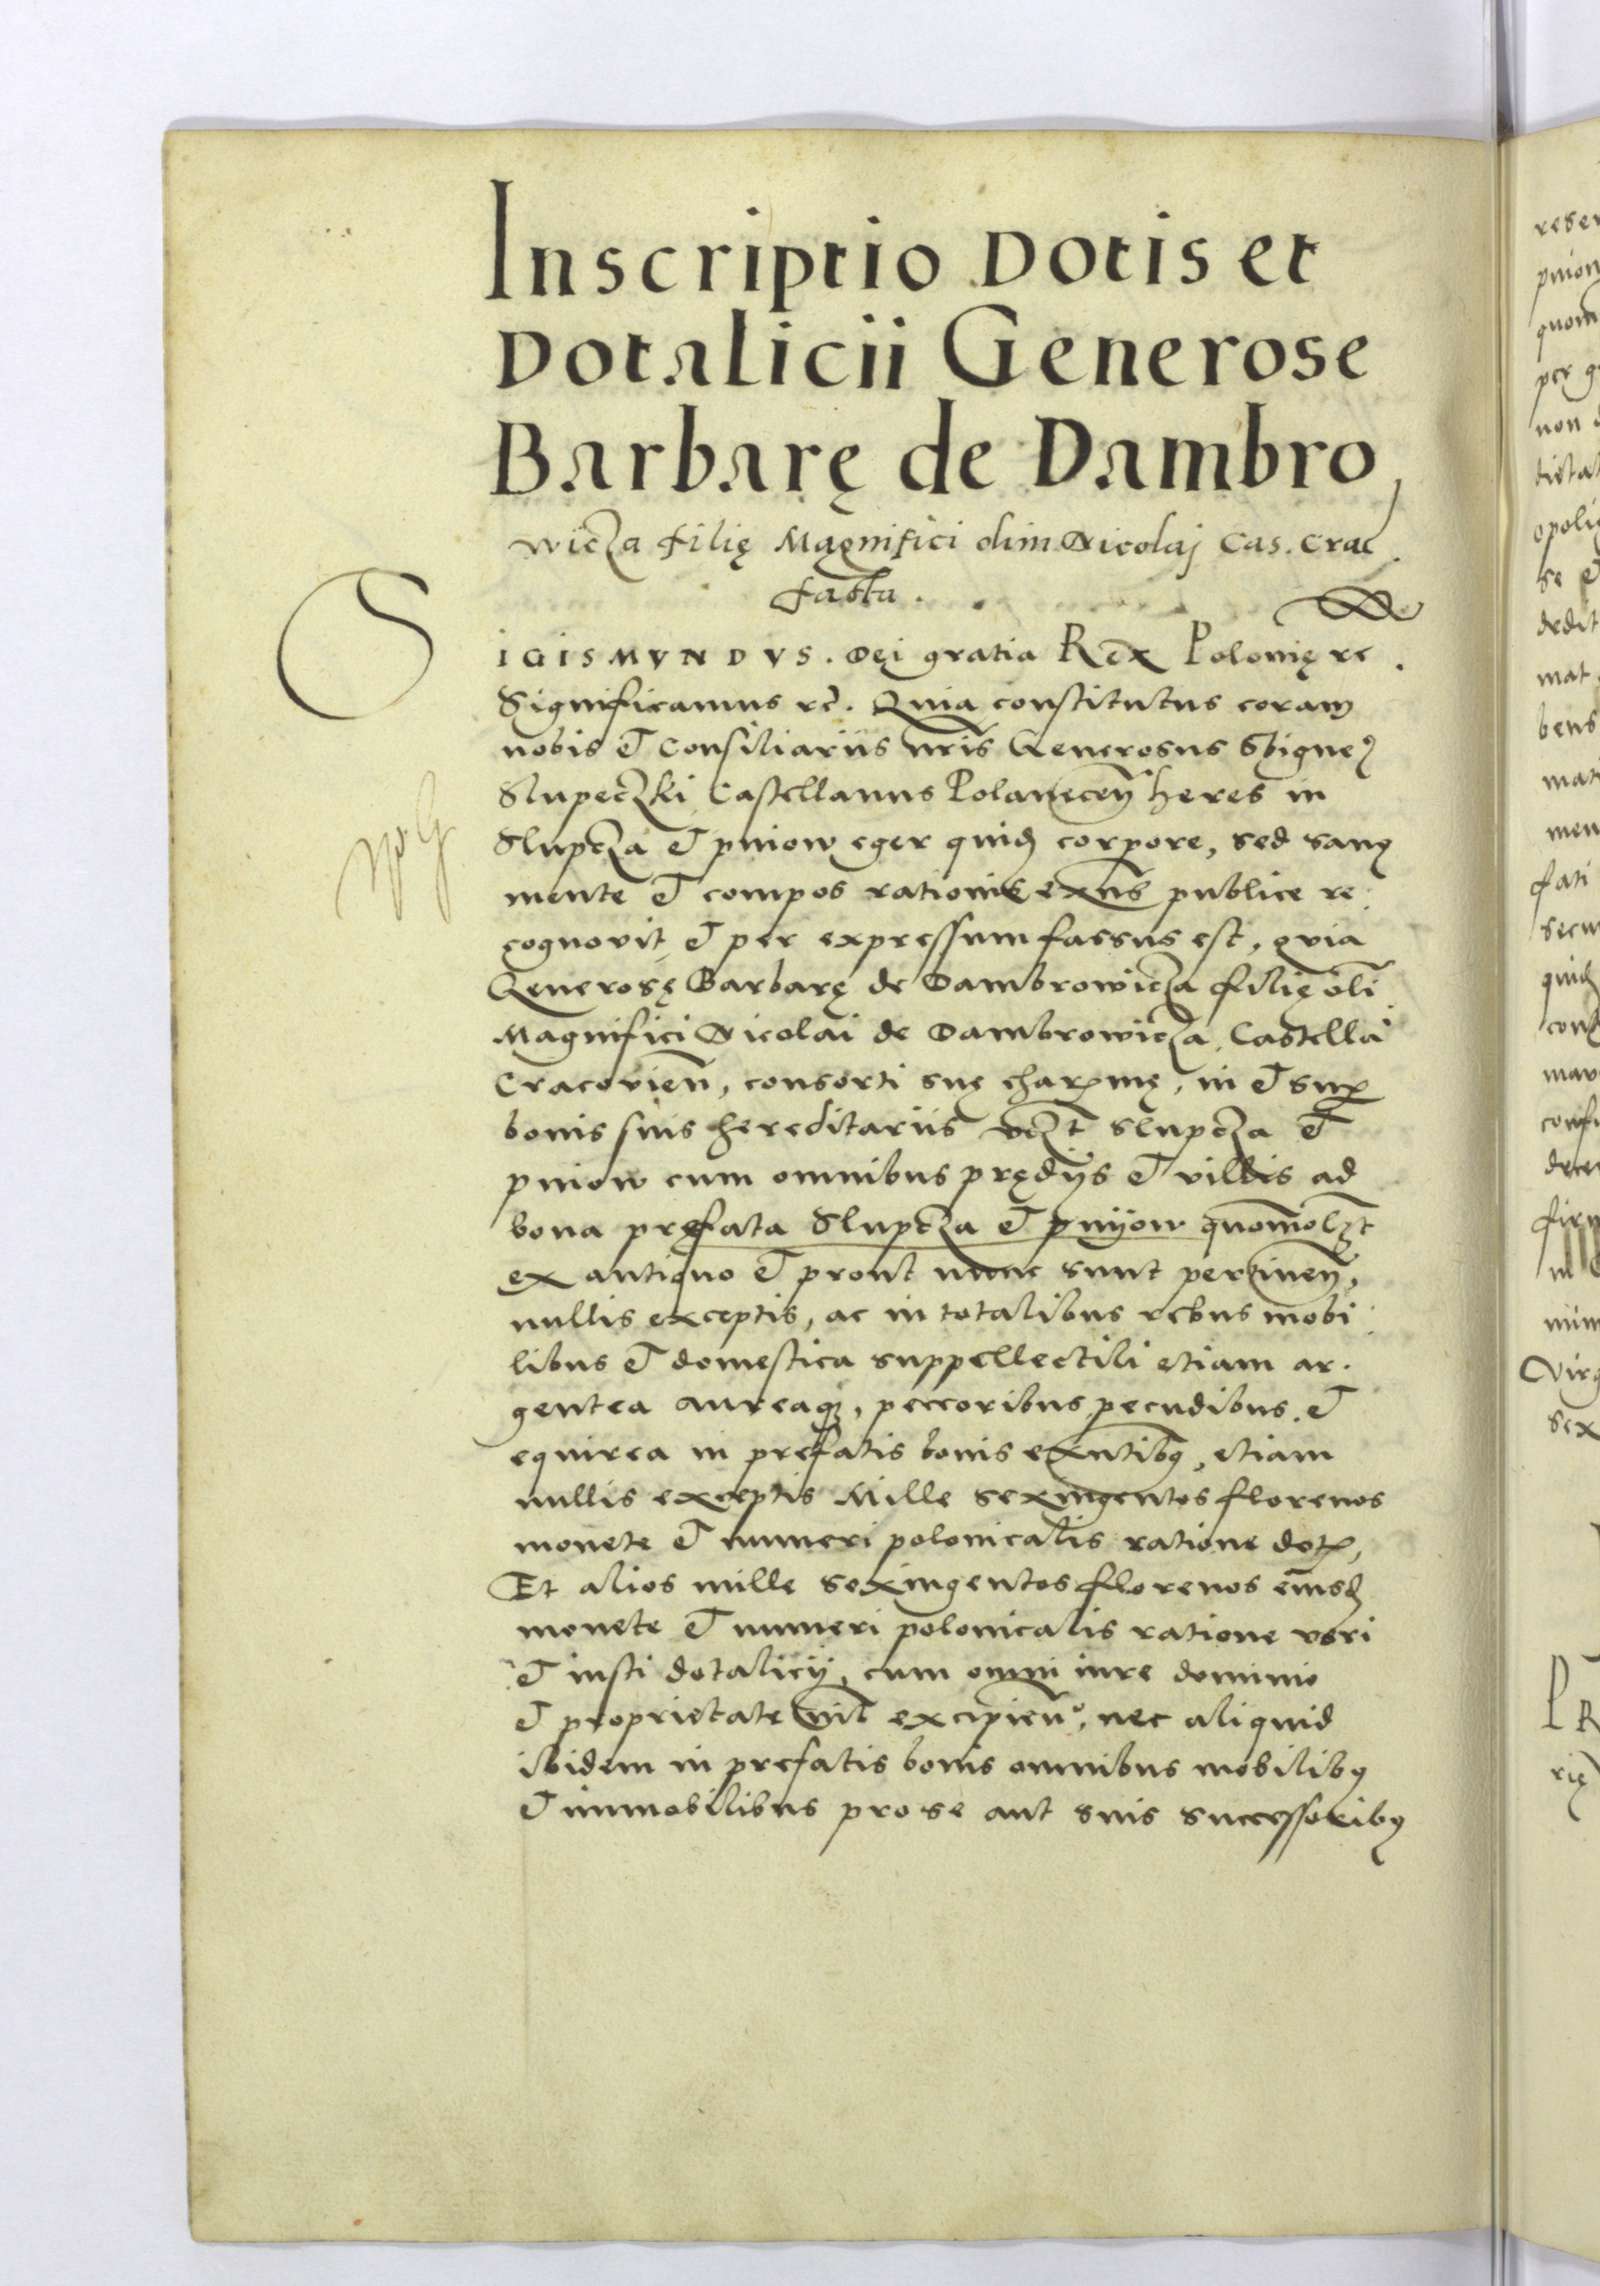 Inscriptio Dotis et
Dotalicii Generose
Barbarę de Dambro
wicza filię Magnifici olim Nicolaj Cas. Crac.
facta.
SIGISMVNDVS. Dei gratia Rex Polonię rc.
Significamus rc. Quia constitutus coram
nobis et Consiliariis nris Generosus Sbigneus
Slupeczki Castellanus Polanecen heres in
Slupcza et pniow eger quid corpore, sed sanus
mente et compos rationis exns publice re
cognovit et per expressum fassus est, quia
Generosę Barbarę de Dambrowicza filię oli
Magnifici Nicolai de Dambrowicza Castella
Cracovien, consorti suę charmę, in et sup
bonis suis hereditariis vczt Slupcza et
pniow cum omnibus prędijs et villis ad
bona prefata Slupcza et pnijow quomolzt
ex antiquo et prout nunc sunt pertinen,
nullis exceptis, ac in totalibus rebus mobi
libus et domestica suppellectili etiam ar.
gentea aureaq, peccoribus pecudibus et
equirea in prefatis bonis exntibus, etiam
nullis exceptis Mille sexingentos florenos
monete et numeri polonicalis ratione dot,
Et alios mille sexingentos florenos eiusd
monete et numeri polonicalis ratione veri
et iusti dotalicij, cum omni iure dominio
et proprietate nil excipien, nec aliquid
ibidem in prefatis bonis omnibus mobilibus
et immobilibus pro se aut suis successoribus